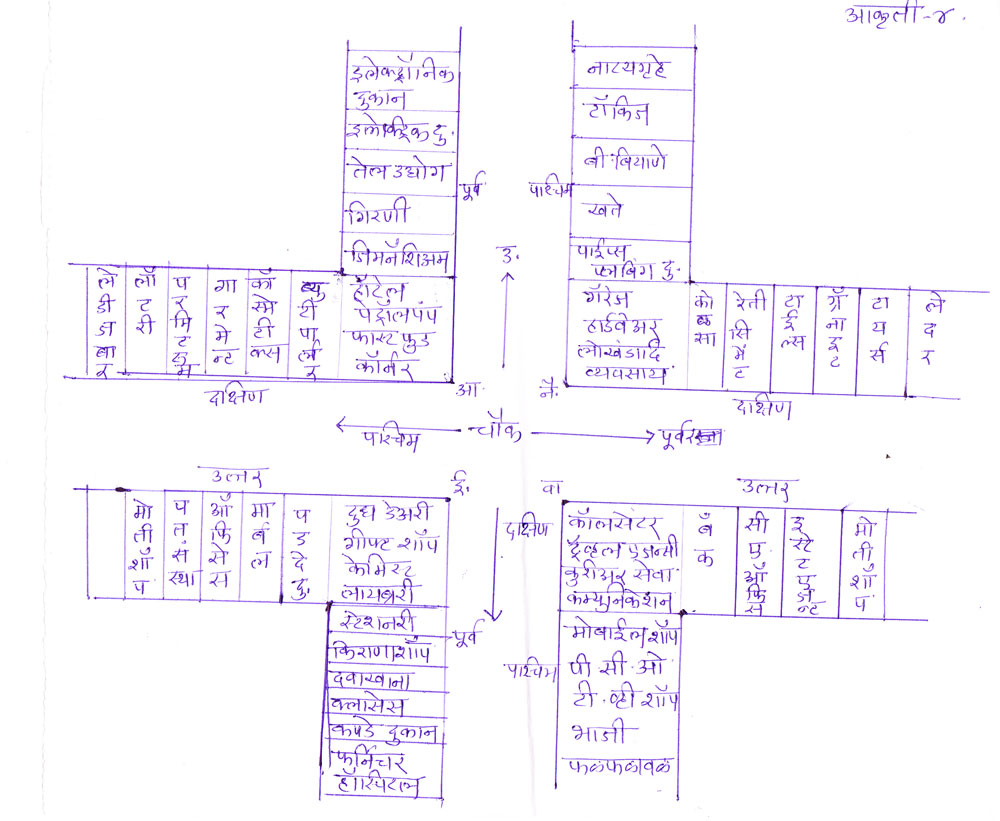 आकृती-४.
इलेक्ट्रॉनिक
दुकान
इलेक्ट्रिक दु.
तेल उद्योग
गिरणी
जिमनॅशिअम
पूर्व
नाटयगृहे
टॉकिज
बी-बियाणे
खते
पाईप्स
प्लंबिंग दु.
पाश्चिम
उ.
लेडीजबार
लॉटरी
परमिटरुम
गारमेन्ट
कॉस्मेटीक्स
ब्युटीपार्लर
हॉटेल
पेट्रोलपंप
फास्ट फुड
कॉर्नर
गॅरेज
हार्डवेअर
लोखंडादि
व्यवसाय
कोळसा
रेती सिमेंट
टाईल्स
ग्रॅनाइट
टायर्स
लेदर
दाक्षिण
आ.
नै.
दाक्षिण
पाश्चिम
चौक
पूर्व
उत्तर
ई.
वा.
उत्तर
मोतीशॉप
पतसंस्था
ऑफिसेस
मार्बल
पडदे दु.
दुध डेअरी
गीफ्ट शॉप
केमिस्ट
लायब्ररी
स्टेशनरी
किराणा शॉप
दवाखाना
क्लासेस
कपडे दुकान
फर्निचर
हॉस्पिटल
पूर्व
दाक्षिण
कॉलसेंटर
ट्रॅव्हल एजन्सी
कुरीअर सेवा
कम्युनिकेशन
बँक
सीए ऑफिस
इस्टेट एजंट
मोतीशॉप
पाश्चिम
मोबाईल शॉप
पी सी.ओ
टी.व्ही शॉप
भाजी
फळफळावळ